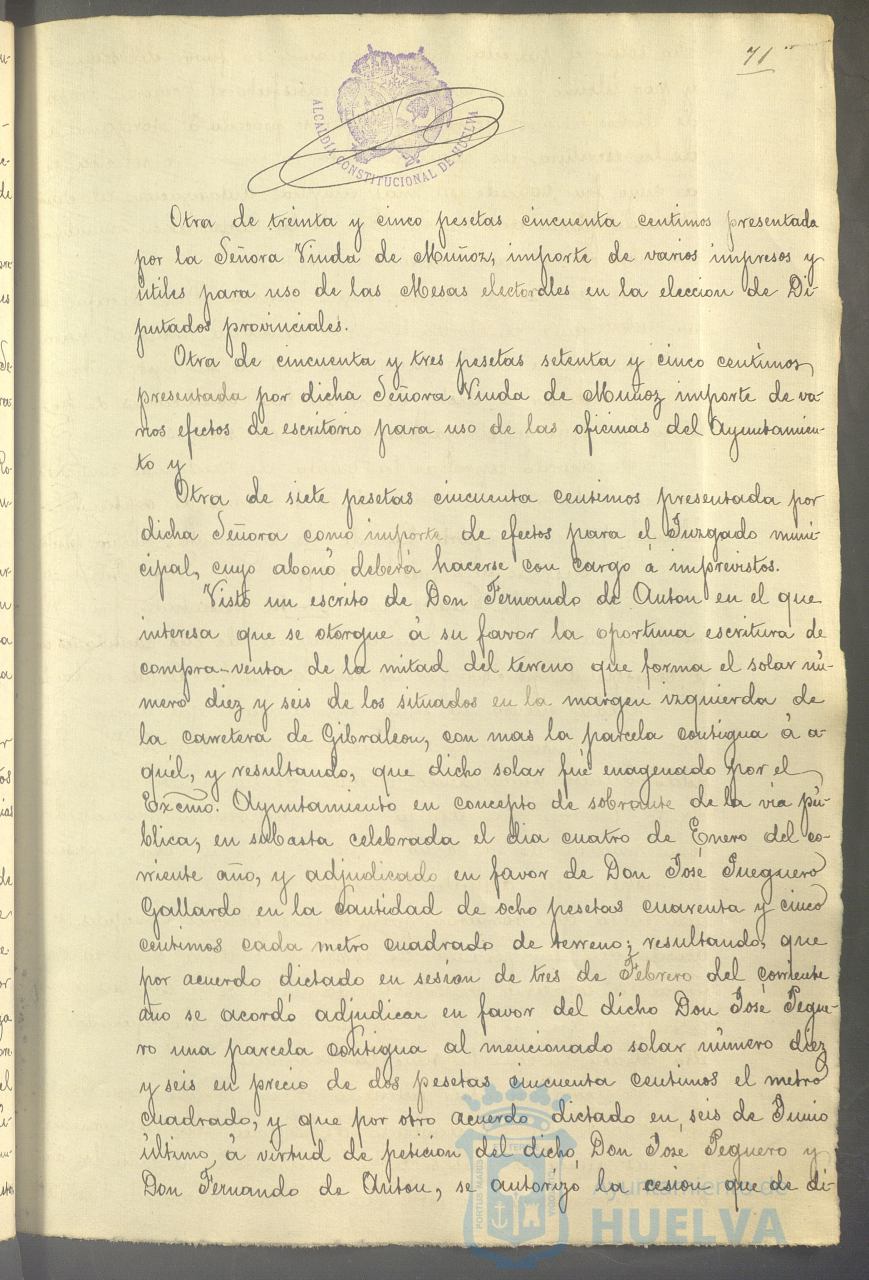 71
ALCALDIA CONSTITUCIONAL DE HUELVA
Otra de treinta y cinco pesetas cincuenta centimos presentada
por la Señora Viuda de Muñoz, importe de varios impresos y
útiles para uso de las Mesas electorales en la eleccion de Di-
putados provinciales.
Otra de cincuenta y tres pesetas setenta y cinco centimos,
presentada por dicha Señora Viuda de Muñoz importe de va-
rios efectos de escritorio para uso de las oficinas del Ayuntamien-
to y
Otra de siete pesetas cincuenta centimos presentada por
dicha Señora como importe de efectos para el Juzgado muni-
cipal, cuyo abono deberá hacerse con cargo á imprevistos.
Visto un escrito de Don Fernando de Anton en el que
interesa que se otorgue á su favor la oportuna escritura de
compra-venta de la mitad del terreno que forma el solar nú-
mero diez y seis de los situados en la margen izquierda de
la carretera de Gibraleon, con mas la parcela contigua á a-
quél, y resultando, que dicho solar fué enagenado por el
Excmo. Ayuntamiento en concepto de sobrante de la via pú-
blica, en subasta celebrada el dia cuatro de Enero del co-
rriente año, y adjudicado en favor de Don José Pueguero
Gallardo en la cantidad de ocho pesetas cuarenta y cinco
centimos cada metro cuadrado de terreno; resultando, que
por acuerdo dictado en sesion de tres de Febrero del corriente
año se acordó adjudicar en favor del dicho Don José Pegue-
ro una parcela contigua al mencionado solar número diez
y seis en precio de dos pesetas cincuenta centimos el metro
cuadrado, y que por otro acuerdo dictado en seis de Junio
último, á virtud de peticion del dicho Don José Peguero y
Don Fernando de Anton, se autorizó la cesion que de di-
Ayuntamiento de
HUELVA